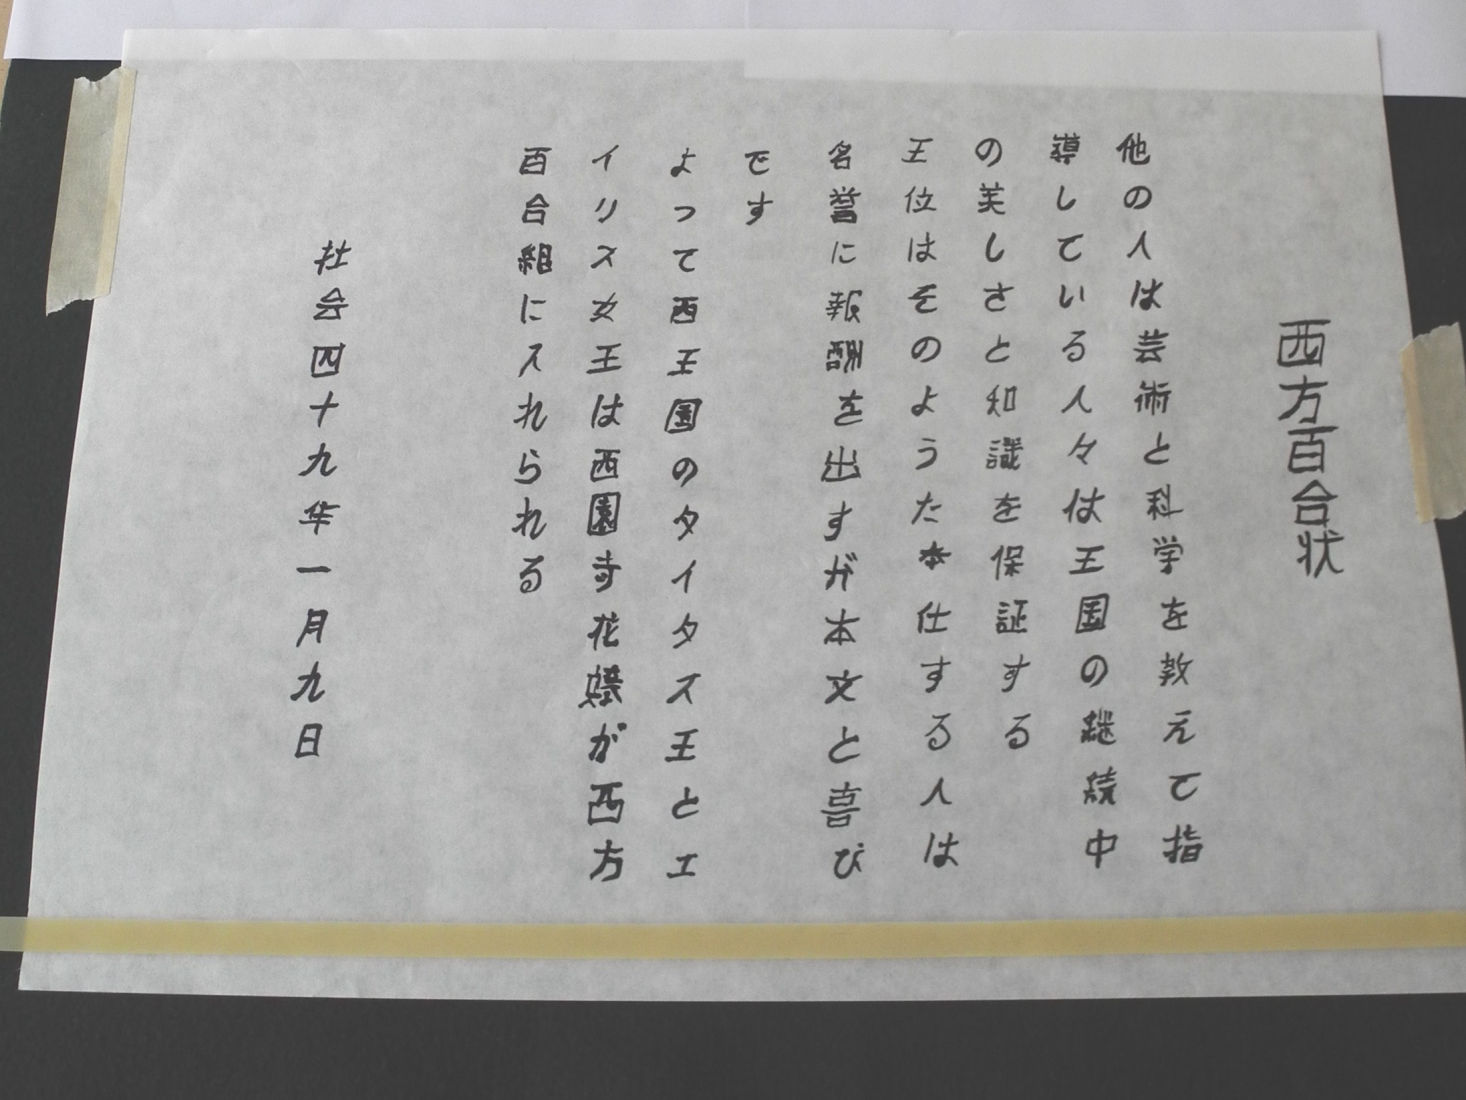 西方百合状
他の人は芸術と科学を教えて指
導している人々は王国の継続中
の美しさと知識を保証する
王位はそのようた本仕する人は
名誉に報酬を出すが本文と喜び
です
よって西王国のタイタス王とエ
イリス女王は西園寺花嫁が西方
百合組に入れられる
社会四十九年一月九日